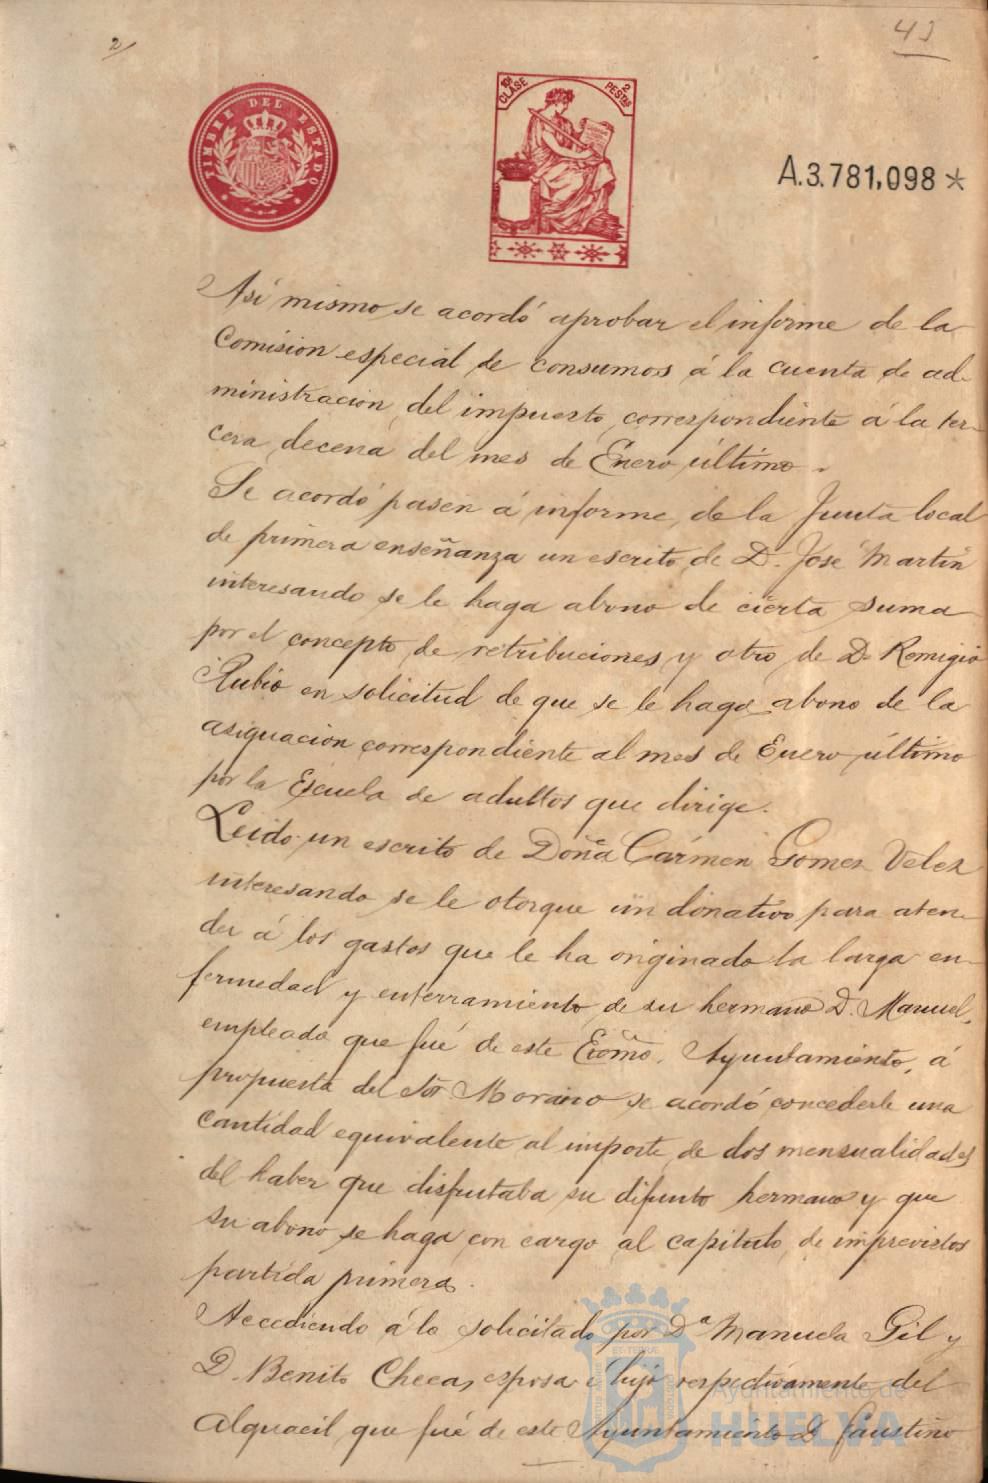 2/
43
TIMBRE DEL ESTADO
10ª CLASE
2 PESTAS
A.3.781,098*
Así mismo se acordó aprobar el informe de la
Comision especial de consumos á la cuenta de ad-
ministracion del impuesto correspondiente á la ter-
cera decena del mes de Enero último.
Se acordó pasen á informe de la Junta local
de primera enseñanza un escrito de D. José Martin
interesando se le haga abono de cierta suma
por el concepto de retribuciones y otro de D. Remigio
Rubio en solicitud de que se le haga abono de la
asignacion correspondiente al mes de Enero último
por la Escuela de adultos que dirige.
Leido un escrito de Doña Cármen Gomez Velez
interesando se le otorgue un donativo para aten-
der á los gastos que le ha originado la larga en-
fermedad y enterramiento de su hermano D. Manuel,
empleado que fué de este Excmo. Ayuntamiento, á
propuesta del Sor Morano se acordó concederle una
cantidad equivalente al importe de dos mensualidades
del haber que disfrutaba su difunto hermano y que
su abono se haga con cargo al capitulo de imprevistos
partida primera.
Accediendo á lo solicitado por Dª Manuela Gil y
D. Benito Checa, esposa é hijo respectivamente del
Alguacil que fué de este Ayuntamiento D. Faustino
Ayuntamiento de
HUELVA